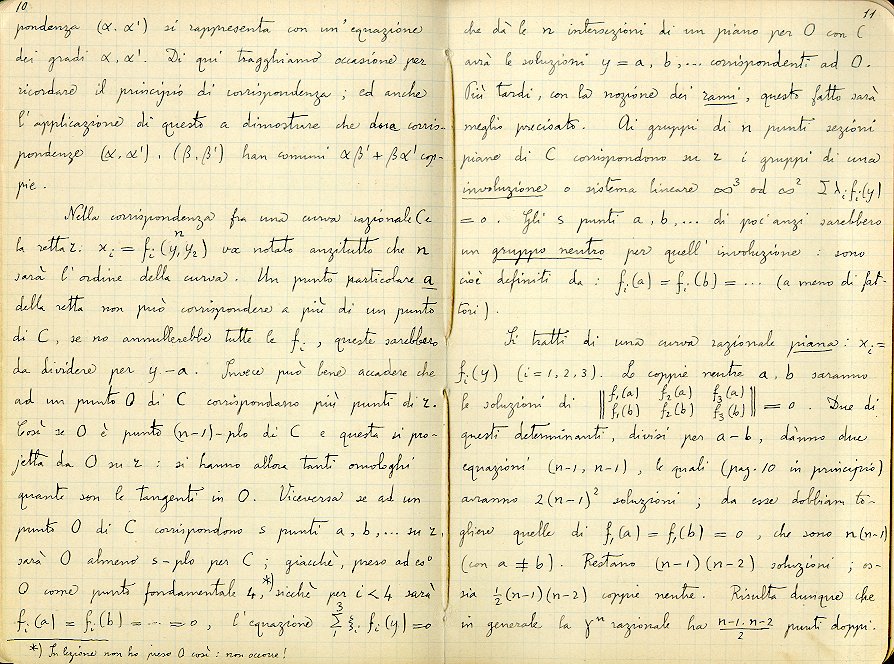 10
pondenza (α. α') si rappresenta con un'equazione
dei gradi α, α'. Di qui tragghiamo occasione per
ricordare il principio di corrispondenza ; ed anche
l'applicazione di questo a dimostrare che due corris-
pondenze (α, α'), (β, β') han comuni αβ' + βα' cop-
pie.
Nella corrispondenza fra una curva razionale C e
la retta r: xᵢ = fᵢ(y₁,y₂) va notato anzitutto che n
sarà l'ordine della curva. Un punto particolare a
della retta non può corrispondere a più di un punto
di C, se no annullerebbe tutte le fᵢ, queste sarebbero
da dividere per y-a. Invece può bene accadere che
ad un punto O di C corrispondano più punti di r.
Così se O è punto (n-1)-plo di C e questa si pro-
jetta da O su r : si hanno allora tanti omologhi
quante son le tangenti in O. Viceversa se ad un
punto O di C corrispondono s punti a, b,... su r,
sarà O almeno s-plo per C ; giacchè, preso ad es⁰
O come punto fondamentale 4,*) sicchè per i < 4 sarà
fᵢ(a) = fᵢ(b) = ... = 0, l'equazione Σ₁³ ξᵢ fᵢ(y) = 0
*) In lezione non ho preso O così : non occorre!
11
che dà le n intersezioni di un piano per O con C
avrà le soluzioni y = a, b, ... corrispondenti ad O.
Più tardi, con la nozione dei rami, questo fatto sarà
meglio precisato. Ai gruppi di n punti sezioni
piane di C corrispondono su r i gruppi di una
involuzione o sistema lineare ∞³ od ∞² Σ λᵢ fᵢ(y)
= 0. Gli s punti a, b, ... di poc'anzi sarebbero
un gruppo neutro per quell'involuzione : sono
cioè definiti da : fᵢ(a) = fᵢ(b) = ... (a meno di fat-
tori).
Si tratti di una curva razionale piana : xᵢ =
fᵢ(y) (i = 1, 2, 3). Le coppie neutre a, b saranno
le soluzioni di || f₁(a) f₂(a) f₃(a)
f₁(b) f₂(b) f₃(b) || = 0. Due di
questi determinanti, divisi per a-b, dànno due
equazioni (n-1, n-1), le quali (pag. 10 in principio)
avranno 2(n-1)² soluzioni ; da esse dobbiam to-
gliere quelle di f₁(a) = f₁(b) = 0, che sono n(n-1)
(con a ≠ b). Restano (n-1)(n-2) soluzioni ; os-
sia ½(n-1)(n-2) coppie neutre. Risulta dunque che
in generale la γⁿ razionale ha (n-1.n-2)/2 punti doppi.